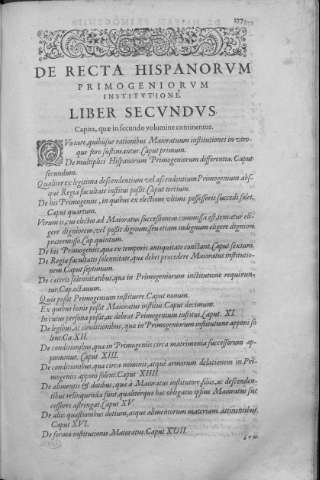 DE RECTA HISPANORVM
PRIMOGENIORVM
INSTITVTIONE.
LIBER SECVNDVS.
Capita, quæ in secundo volumine continentur.
QVo iure, quibusque rationibus Maioratuum institutiones in utroque
foro sustineantur. Caput primum.
De multiplici Hispanorum Primogeniorum differentia. Caput
secundum.
Qualiter ex legitima descendentium vel ascendentium Primogenium absque
Regia facultate institui possit. Caput tertium.
De his Primogeniis, in quibus ex electione ultimi possessoris succedi solet,
Caput quartum.
Verum is, cui electio ad Maioratus successionem commissa est, teneatur eligere
digniorem, vel possit dignum, seu etiam indignum eligere digniori
prætermisso. Cap. quintum.
De his Primogeniis, quæ ex temporis antiquitate constant. Caput sextum.
De Regiæ facultatis solemnitate, quæ debet præcedere Maioratus institutionem.
Caput septimum.
De cæteris solemnitatibus, quæ in Primogeniorum institutione requiruntur.
Cap. octauum.
Quis possit Primogenium instituere. Caput nonum.
Ex quibus bonis possit Maioratus institui. Caput decimum.
In cuius persona possit, ac debeat Primogenium institui. Caput. XI.
De legibus, ac conditionibus, quæ in Primogeniorum institutione apponi solent.
Ca. XII.
De conditionibus, quæ circa matrimonia successorum apponuntur.
Caput XIII.
De conditionibus, quæ circa nominis, atque armorum delationem in Primogeniis
apponi solent. Caput XIIII.
De alimentis & dotibus, quæ a Maioratus institutore filiis, ac descendentibus
relinquenda sunt, qualiterque hæc obligatio ipsius Maioratus successores
astringat. Caput XV.
De aliis quæstionibus dotium, atque alimentorum materiam attinentibus,
Caput XVI.
De forma institutionis Maioratus. Caput XVII.